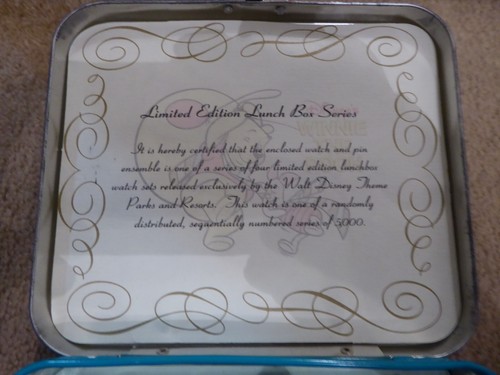 Limited Edition Lunch Box Series
It is hereby certified that the enclosed watch and pin
ensemble is one of a series of four limited edition lunchbox
watch sets released exclusively by the Walt Disney Theme
Parks and Resorts. This watch is one of a randomly
distributed, sequentially numbered series of 5,000.